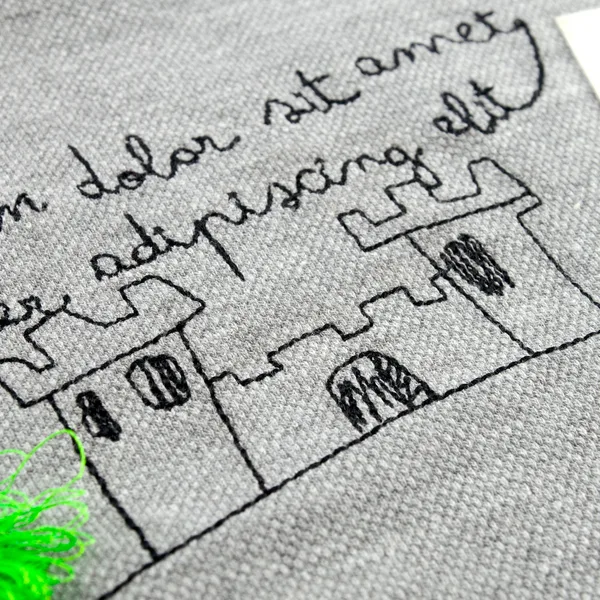 dolor sit amet,
adipiscing elit